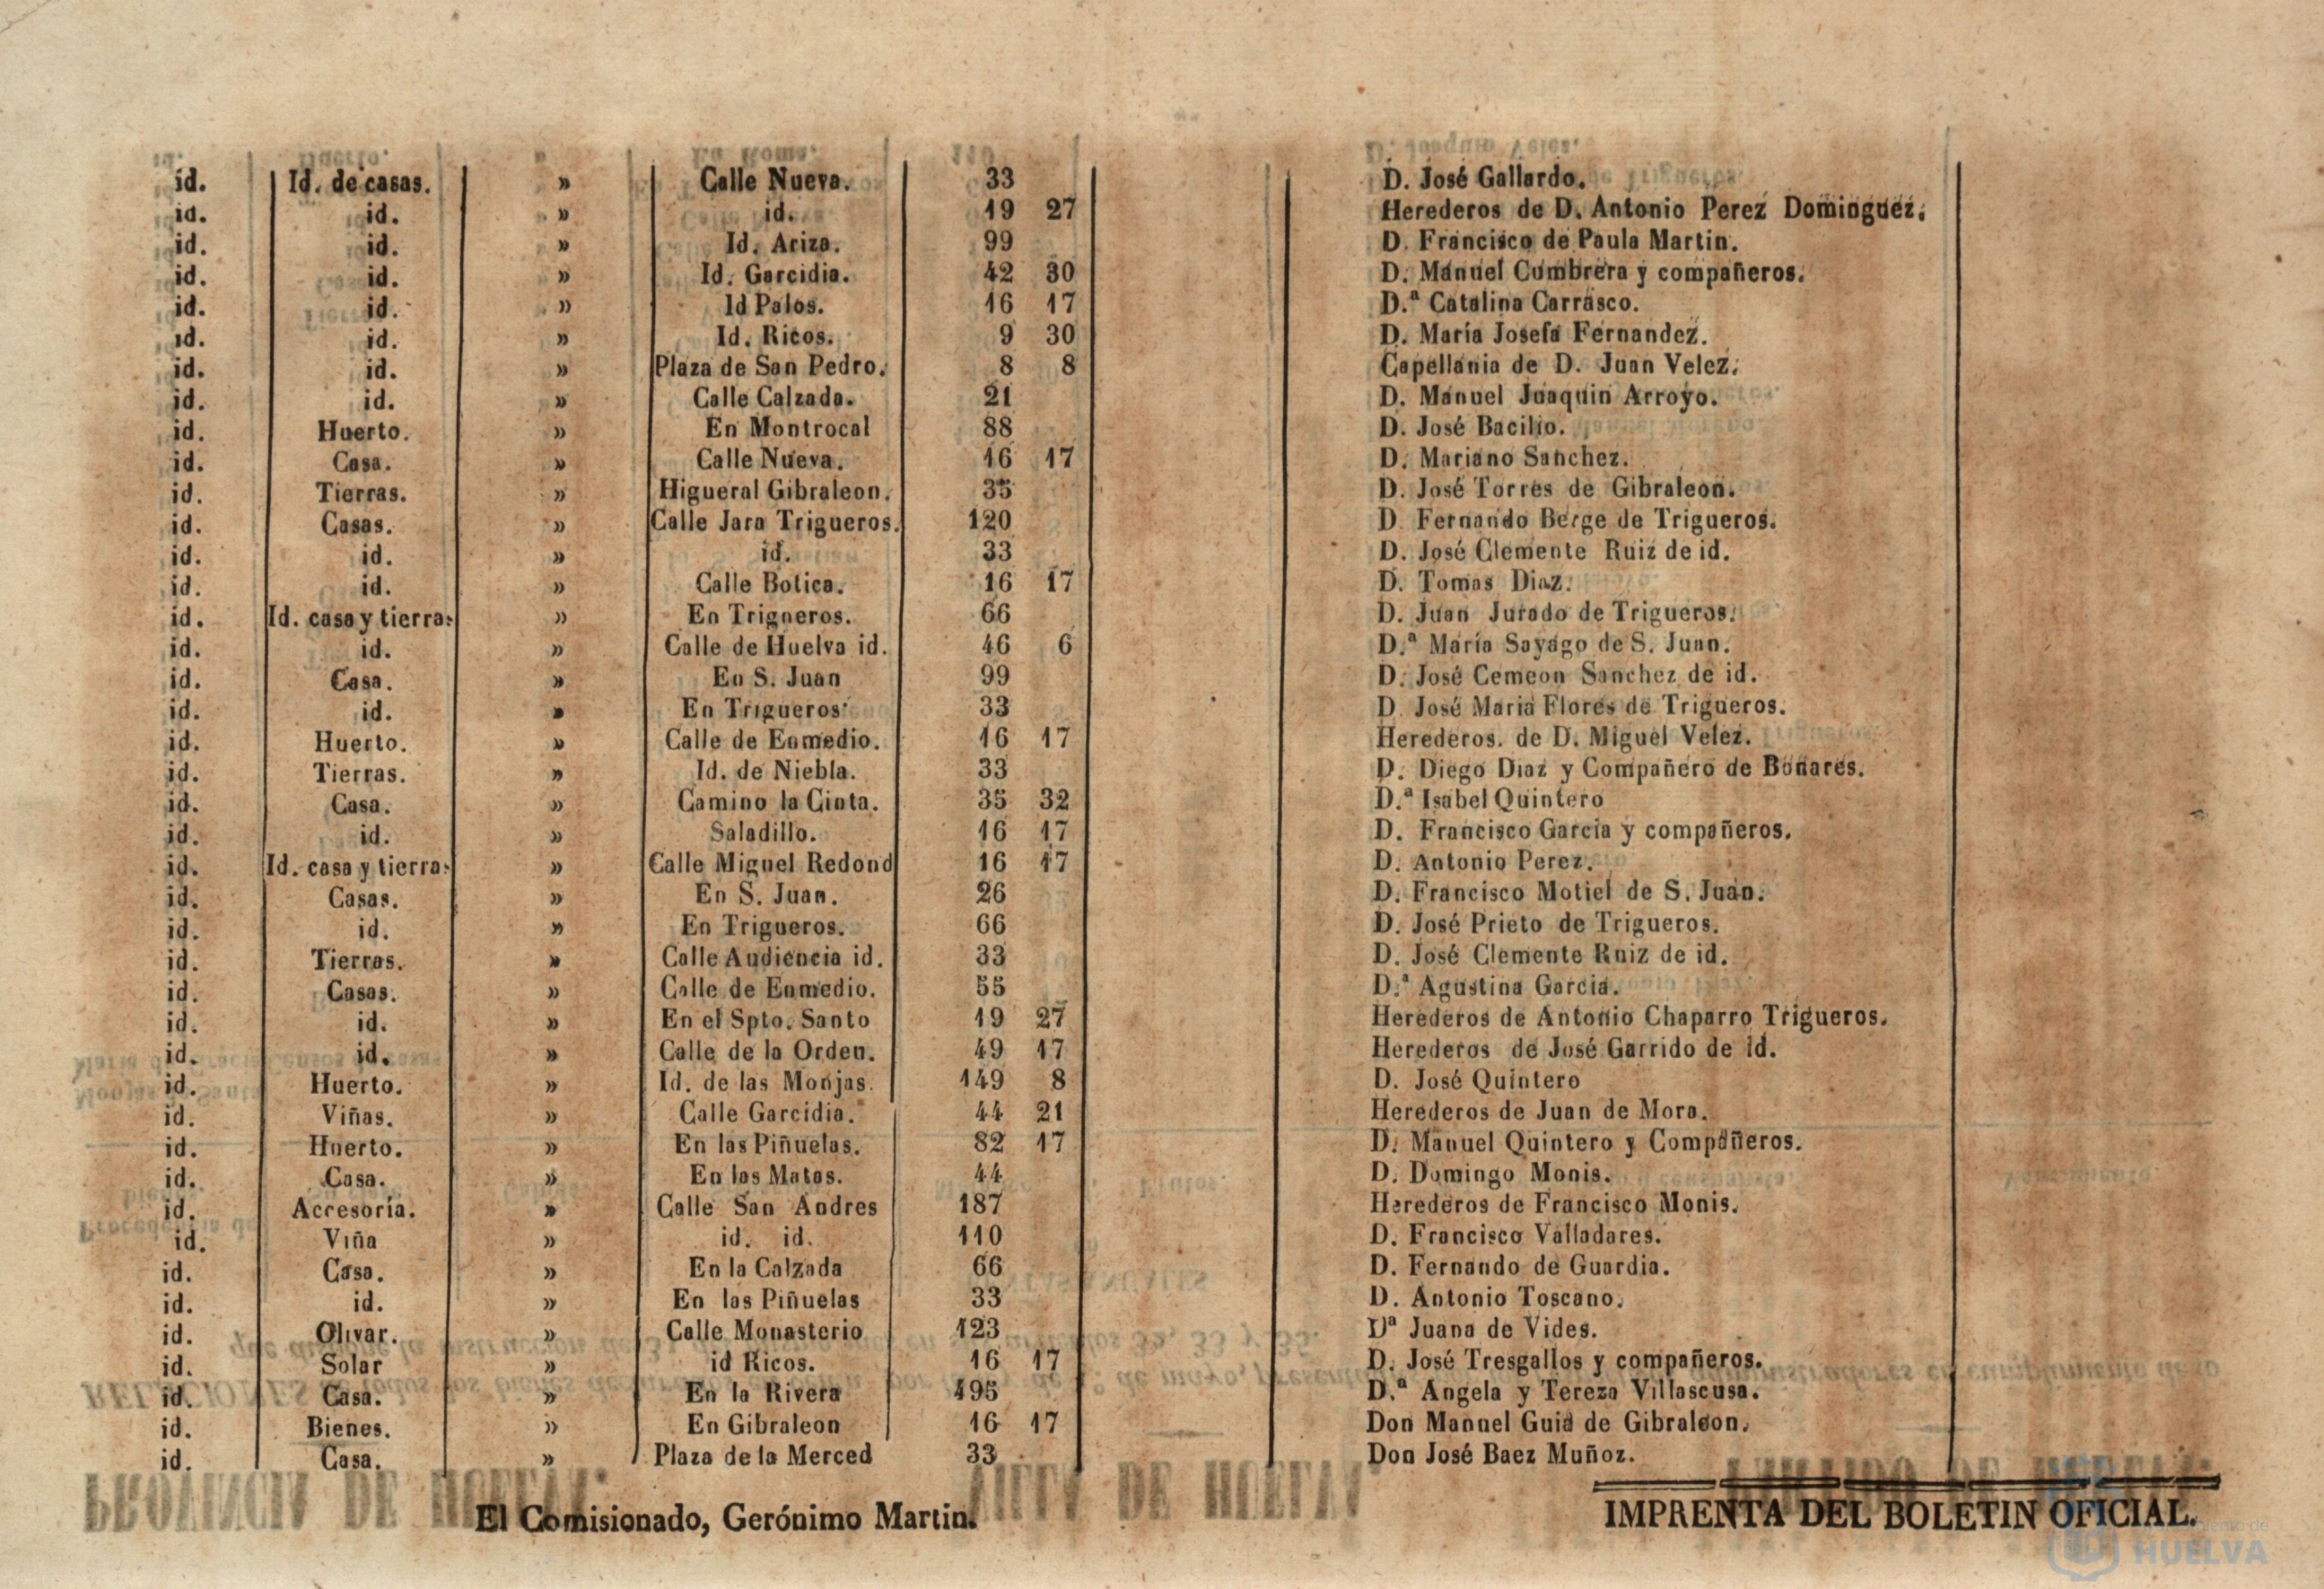 id. Id. de casas. » Calle Nueva. 33 D. José Gallardo.
id. id. » id. 19 27 Herederos de D. Antonio Perez Dominguez.
id. id. » Id. Ariza. 99 D. Francisco de Paula Martin.
id. id. » Id. Garcidia. 42 30 D. Manuel Cumbrera y compañeros.
id. id. » Id Palos. 16 17 D.ª Catalina Carrasco.
id. id. » Id. Ricos. 9 30 D. María Josefa Fernandez.
id. id. » Plaza de San Pedro. 8 8 Capellania de D. Juan Velez.
id. id. » Calle Calzada. 21 D. Manuel Joaquin Arroyo.
id. Huerto. » En Montrocal 88 D. José Bacilio.
id. Casa. » Calle Nueva. 16 17 D. Mariano Sanchez.
id. Tierras. » Higueral Gibraleon. 35 D. José Torres de Gibraleon.
id. Casas. » Calle Jara Trigueros. 120 D. Fernando Berge de Trigueros.
id. id. » id. 33 D. José Clemente Ruiz de id.
id. id. » Calle Botica. 16 17 D. Tomas Diaz.
id. Id. casa y tierra. » En Trigneros. 66 D. Juan Jurado de Trigueros.
id. id. » Calle de Huelva id. 46 6 D.ª María Sayago de S. Juan.
id. Casa. » En S. Juan 99 D. José Cemeon Sanchez de id.
id. id. » En Trigueros 33 D. José Maria Flores de Trigueros.
id. Huerto. » Calle de Enmedio. 16 17 Herederos. de D. Miguel Velez.
id. Tierras. » Id. de Niebla. 33 D. Diego Diaz y Compañero de Bonares.
id. Casa. » Camino la Cinta. 35 32 D.ª Isabel Quintero
id. id. » Saladillo. 16 17 D. Francisco García y compañeros.
id. Id. casa y tierra. » Calle Miguel Redond 16 17 D. Antonio Perez.
id. Casas. » En S. Juan. 26 D. Francisco Motiel de S. Juan.
id. id. » En Trigueros. 66 D. José Prieto de Trigueros.
id. Tierras. » Calle Audiencia id. 33 D. José Clemente Ruiz de id.
id. Casas. » Calle de Enmedio. 55 D.ª Agustina Garcia.
id. id. » En el Spto. Santo 19 27 Herederos de Antonio Chaparro Trigueros.
id. id. » Calle de la Orden. 49 17 Herederos de José Garrido de id.
id. Huerto. » Id. de las Monjas. 149 8 D. José Quintero
id. Viñas. » Calle Garcidia. 44 21 Herederos de Juan de Mora.
id. Huerto. » En las Piñuelas. 82 17 D. Manuel Quintero y Compañeros.
id. Casa. » En las Matas. 44 D. Domingo Monis.
id. Accesoría. » Calle San Andres 187 Herederos de Francisco Monis.
id. Viña » id. id. 110 D. Francisco Valladares.
id. Casa. » En la Calzada 66 D. Fernando de Guardia.
id. id. » En las Piñuelas 33 D. Antonio Toscano.
id. Olivar. » Calle Monasterio 123 Dª Juana de Vides.
id. Solar » id Ricos. 16 17 D. José Tresgallos y compañeros.
id. Casa. » En la Rivera 495 D.ª Angela y Tereza Villascusa.
id. Bienes. » En Gibraleon 16 17 Don Manuel Guia de Gibraleon.
id. Casa. » Plaza de la Merced 33 Don José Baez Muñoz.
El Comisionado, Gerónimo Martin.
IMPRENTA DEL BOLETIN OFICIAL.
HUELVA